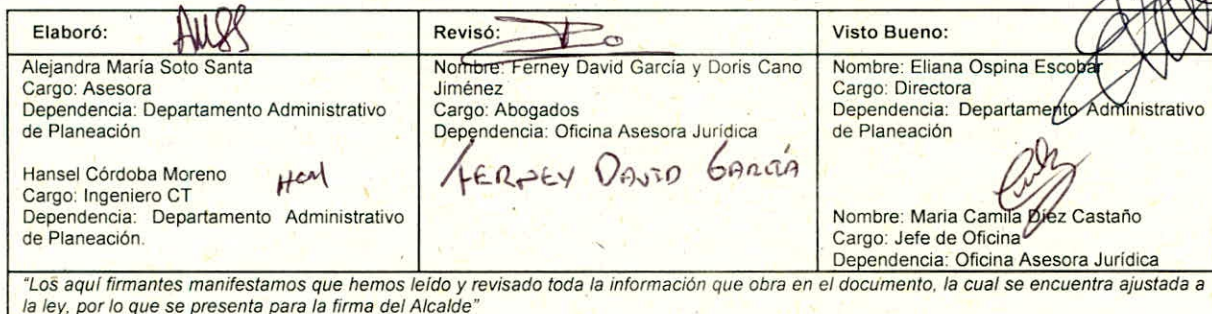 Elaboró:
Alejandra María Soto Santa
Cargo: Asesora
Dependencia: Departamento Administrativo
de Planeación
Hansel Córdoba Moreno
HCM
Cargo: Ingeniero CT
Dependencia: Departamento Administrativo
de Planeación.
Revisó:
Nombre: Ferney David García y Doris Cano
Jiménez
Cargo: Abogados
Dependencia: Oficina Asesora Jurídica
FERNEY DAVID GARCÍA
Visto Bueno:
Nombre: Eliana Ospina Escobar
Cargo: Directora
Dependencia: Departamento Administrativo
de Planeación
Nombre: Maria Camila Díez Castaño
Cargo: Jefe de Oficina
Dependencia: Oficina Asesora Jurídica
"Los aquí firmantes manifestamos que hemos leído y revisado toda la información que obra en el documento, la cual se encuentra ajustada a
la ley, por lo que se presenta para la firma del Alcalde"